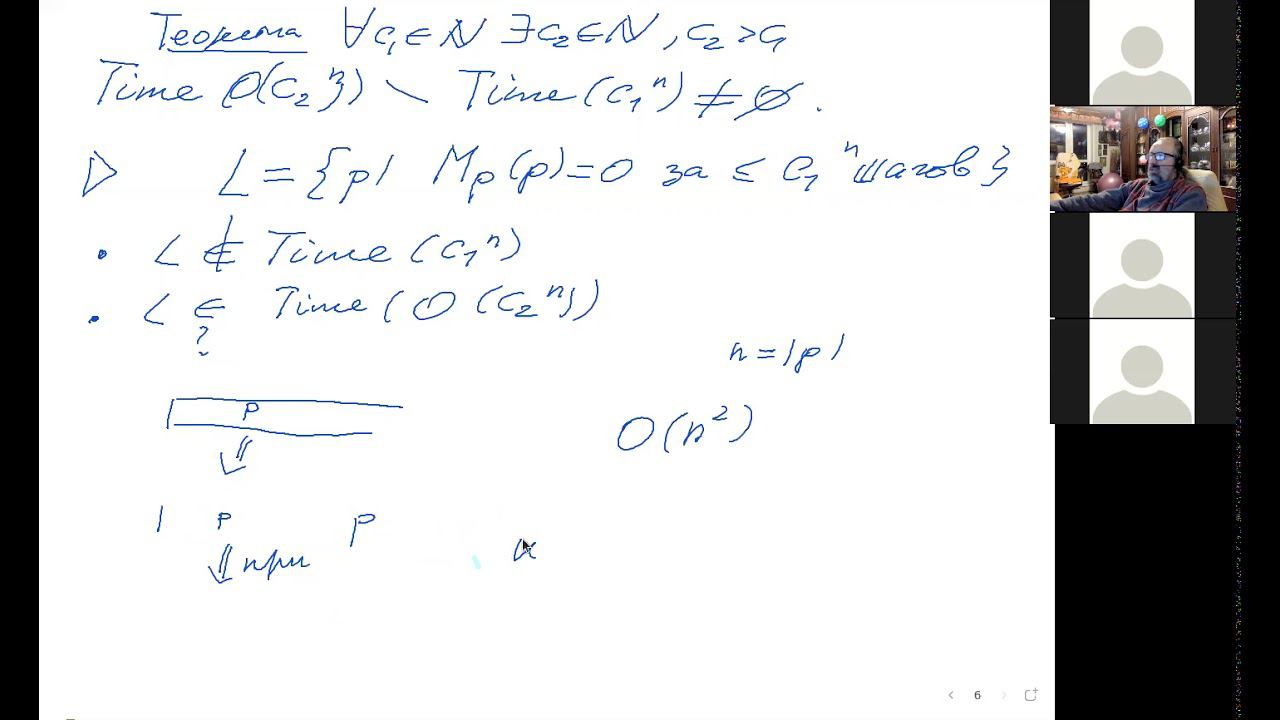 Теорема ∀c₁∈ℕ ∃c₂∈ℕ, c₂>c₁
Time O(c₂ⁿ)) \ Time(c₁ⁿ) ≠ ∅.
▷ L = {p| Mₚ(p)=0 за ≤ c₁ⁿ шагов}
• L ∉ Time(c₁ⁿ)
• L ∈ Time(O(c₂ⁿ))
?
n = |p|
p
O(n²)
| p p
⇓ при к
6